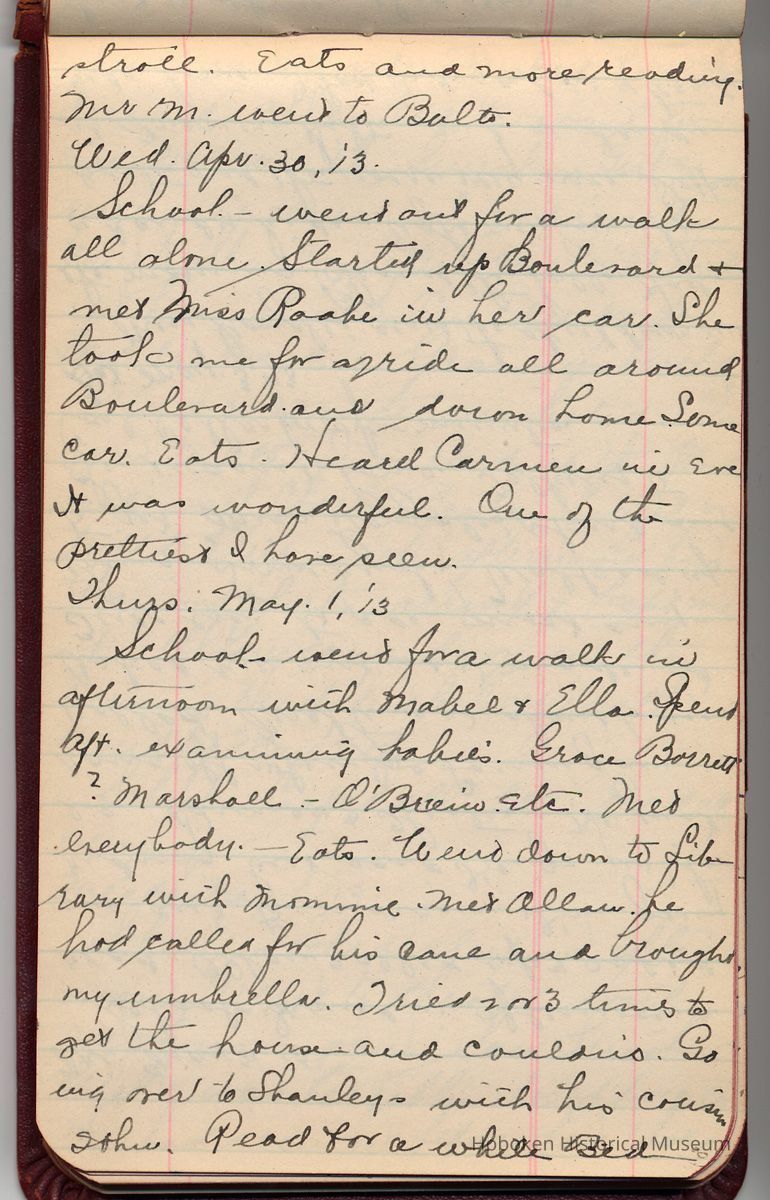 stroll. Eats and more reading.
Mr M. went to Balto.
Wed. Apr. 30, '13.
School. - went out for a walk
all alone. Started up Boulevard +
met Miss Raabe in her car. She
took me for a ride all around
Boulevard and down home. Some
car. Eats. Heard Carmen in Eve
It was wonderful. One of the
prettiest I have seen.
Thurs. May. 1, '13
School - went for a walk in
afternoon with Mabel & Ella. Spent
aft. examining babies. Grace Barrett
? Marshall - O'Brein etc. Met
everybody. - Eats. Went down to Lib-
rary with Mommie. Met Allan. he
had called for his cane and brought
my umbrella. Tried 2 or 3 times to
get the house and couldn't. Go
ing over to Shanleys with his cousin
John. Read for a while Bed
Hoboken Historical Museum